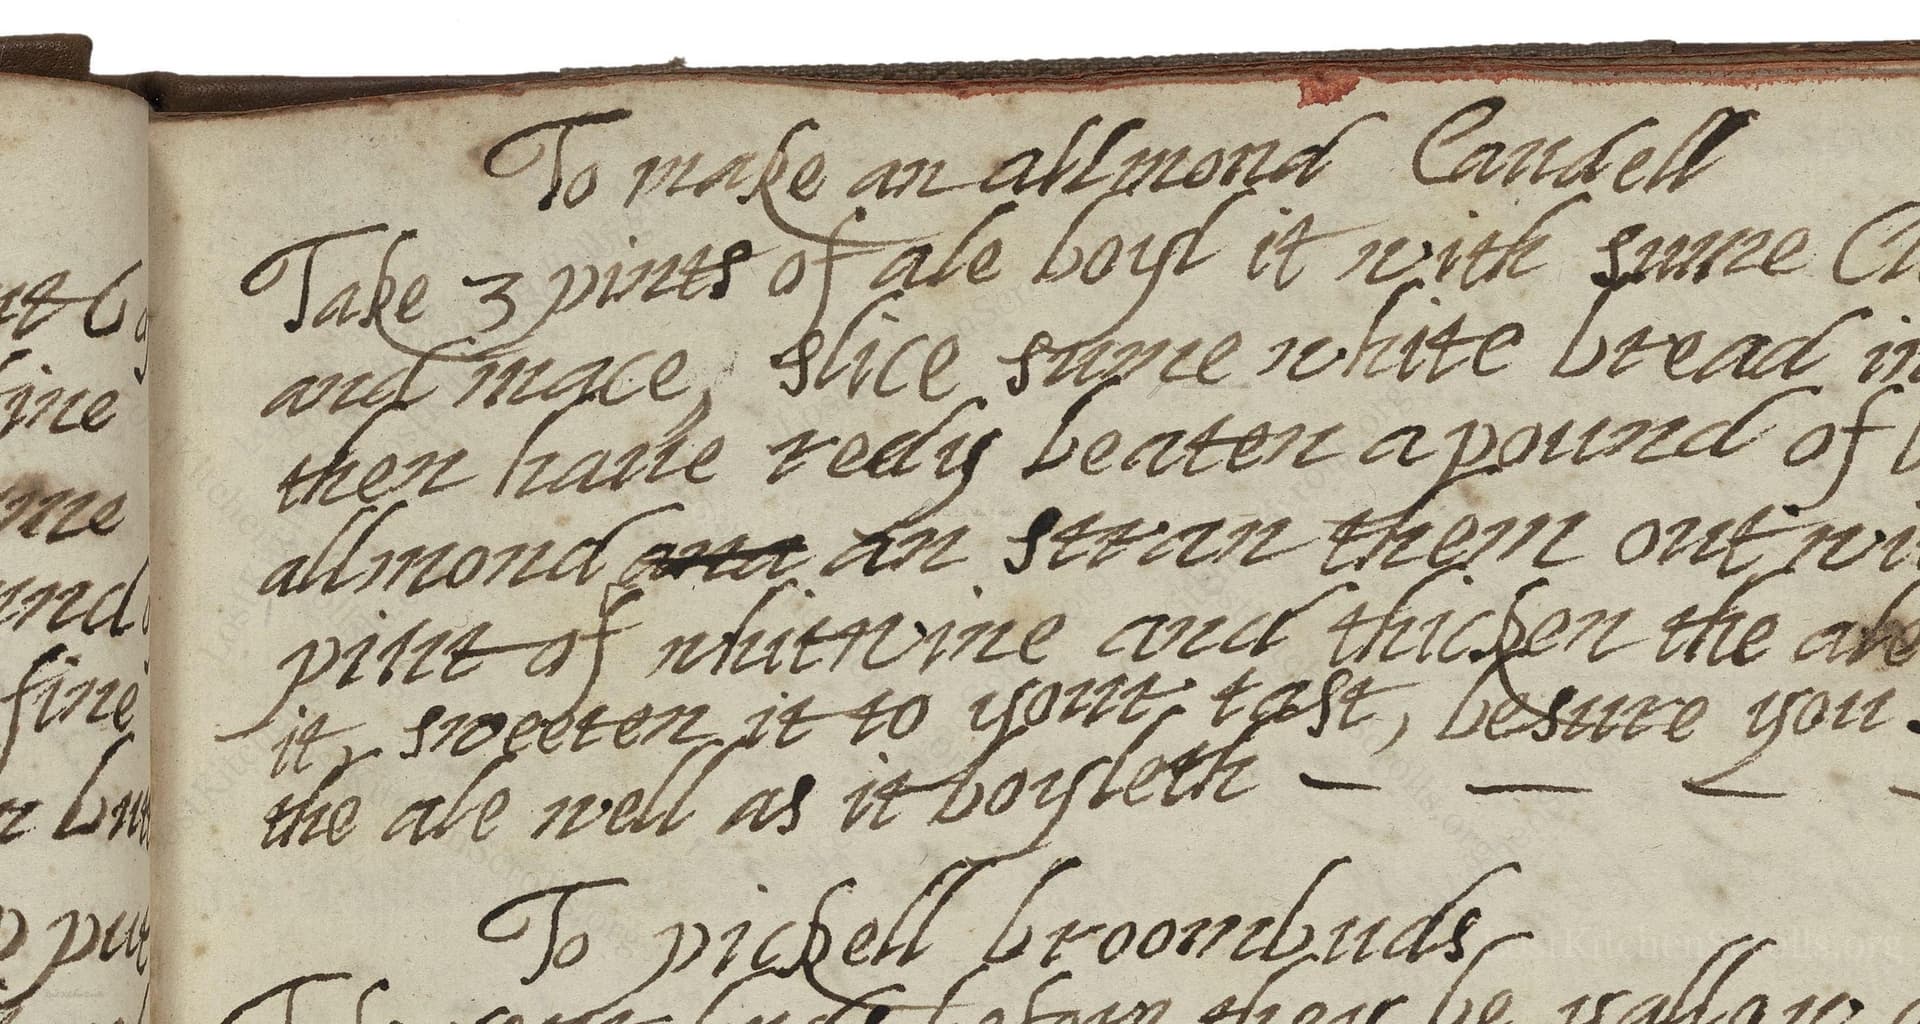 To make an allmond Caudell
Take 3 pints of ale boyl it with sume
and mace, slice sume white bread in
then haue redy beaten a pound of
allmond and an stran them out wi
pint of whitwine and thicken the ale
it, sweeten it to your tast, besure you
the ale well as it boyleth — — — —
To pickell broombuds
before they be yallow